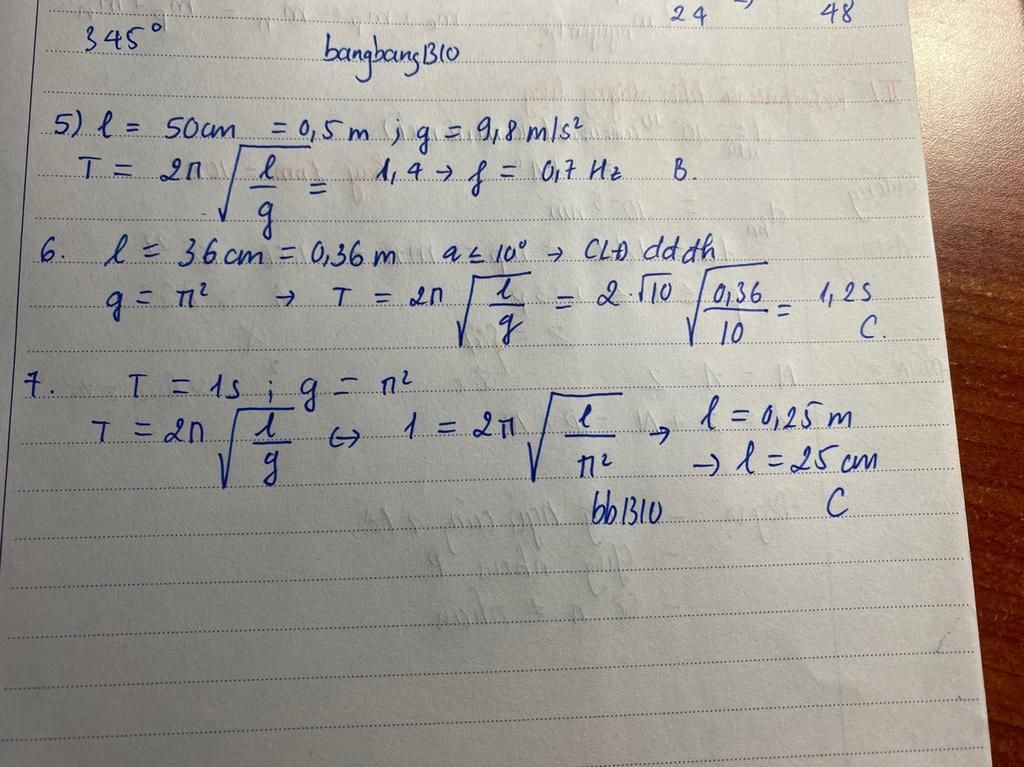 24 → 48
345°
bangbangB10
5) l = 50cm = 0,5 m ; g = 9,8 m/s²
T = 2π √(l/g) = 1,4 → f = 0,7 Hz B.
6. l = 36 cm = 0,36 m a ≤ 10° → CLĐ dđđh
g = π² → T = 2π √(l/g) = 2.√10 √(0,36/10) = 1,2s
C.
7. T = 1s ; g = π²
T = 2π √(l/g) ↔ 1 = 2π √(l/π²) → l = 0,25 m
→ l = 25 cm
bbB10 C